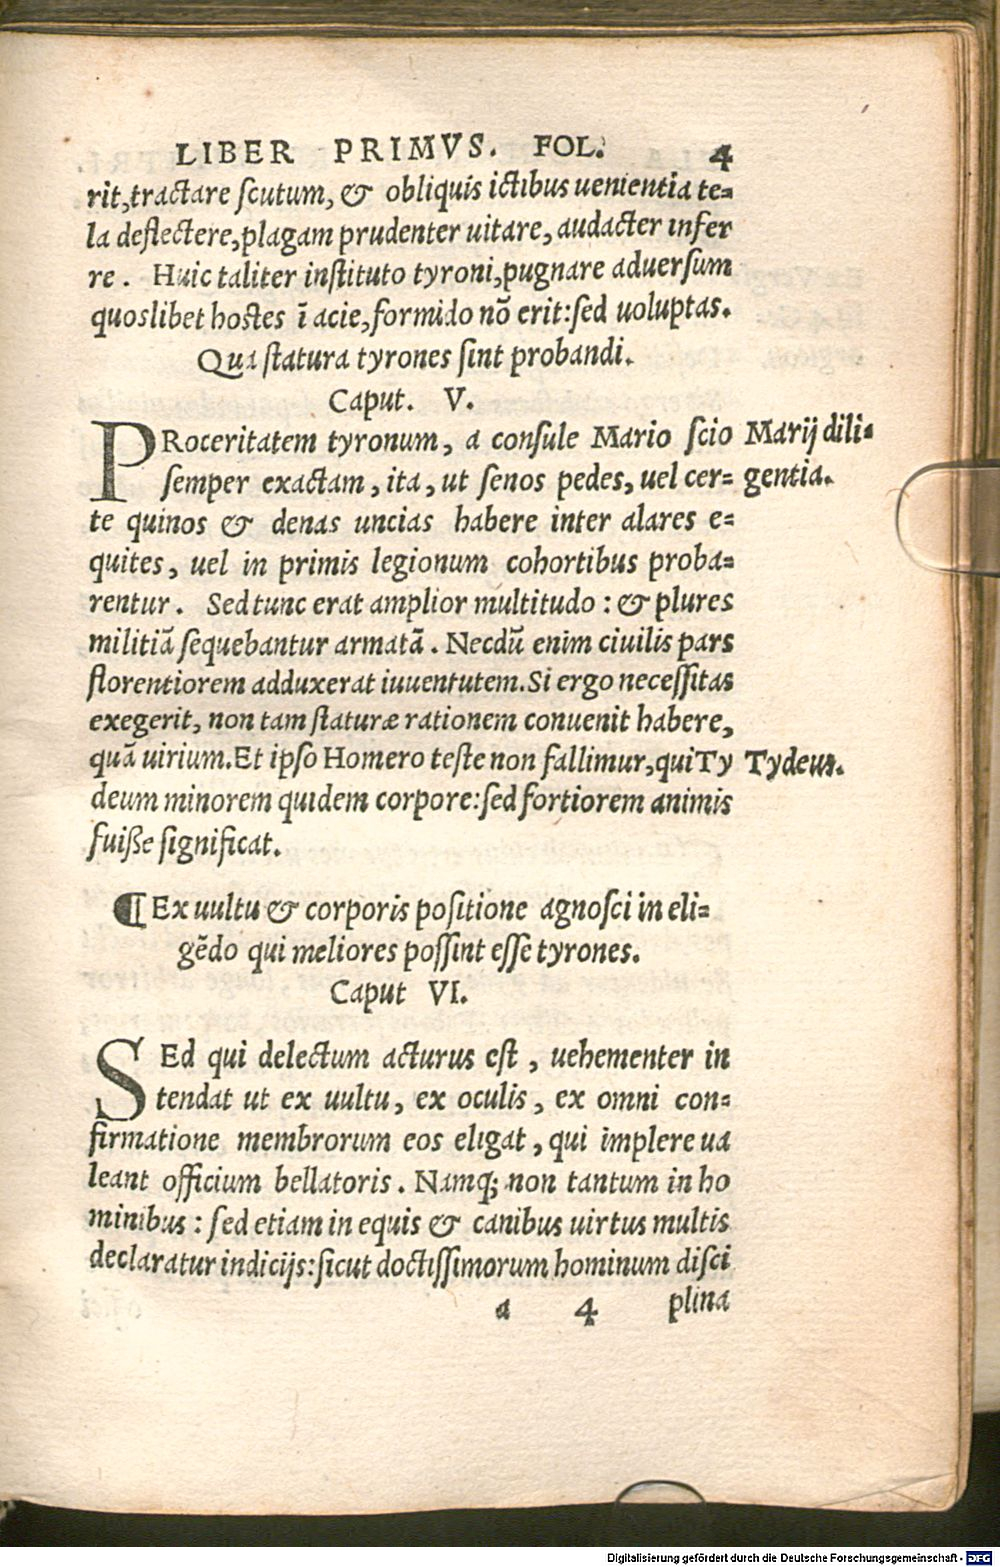 LIBER PRIMVS. FOL. 4
rit, tractare scutum, & obliquis ictibus uenientia te-
la deflectere, plagam prudenter uitare, audacter infer
re. Huic taliter instituto tyroni, pugnare aduersum
quoslibet hostes ī acie, formido nō erit: sed uoluptas.
Qua statura tyrones sint probandi.
Caput. V.
PRoceritatem tyronum, a consule Mario scio
semper exactam, ita, ut senos pedes, uel cer-
te quinos & denas uncias habere inter alares e-
quites, uel in primis legionum cohortibus proba-
rentur. Sed tunc erat amplior multitudo: & plures
militiā sequebantur armatā. Necdū enim ciuilis pars
florentiorem adduxerat iuuentutem. Si ergo necessitas
exegerit, non tam staturæ rationem conuenit habere,
quā uirium. Et ipso Homero teste non fallimur, qui Ty
deum minorem quidem corpore: sed fortiorem animis
fuiße significat.
Marij dili-
gentia.
Tydeus.
¶ Ex uultu & corporis positione agnosci in eli-
gēdo qui meliores possint esse tyrones.
Caput VI.
SEd qui delectum acturus est, uehementer in
tendat ut ex uultu, ex oculis, ex omni con-
firmatione membrorum eos eligat, qui implere ua
leant officium bellatoris. Namq; non tantum in ho
minibus: sed etiam in equis & canibus uirtus multis
declaratur indicijs: sicut doctissimorum hominum disci
a 4 plina
Digitalisierung gefördert durch die Deutsche Forschungsgemeinschaft - DFG